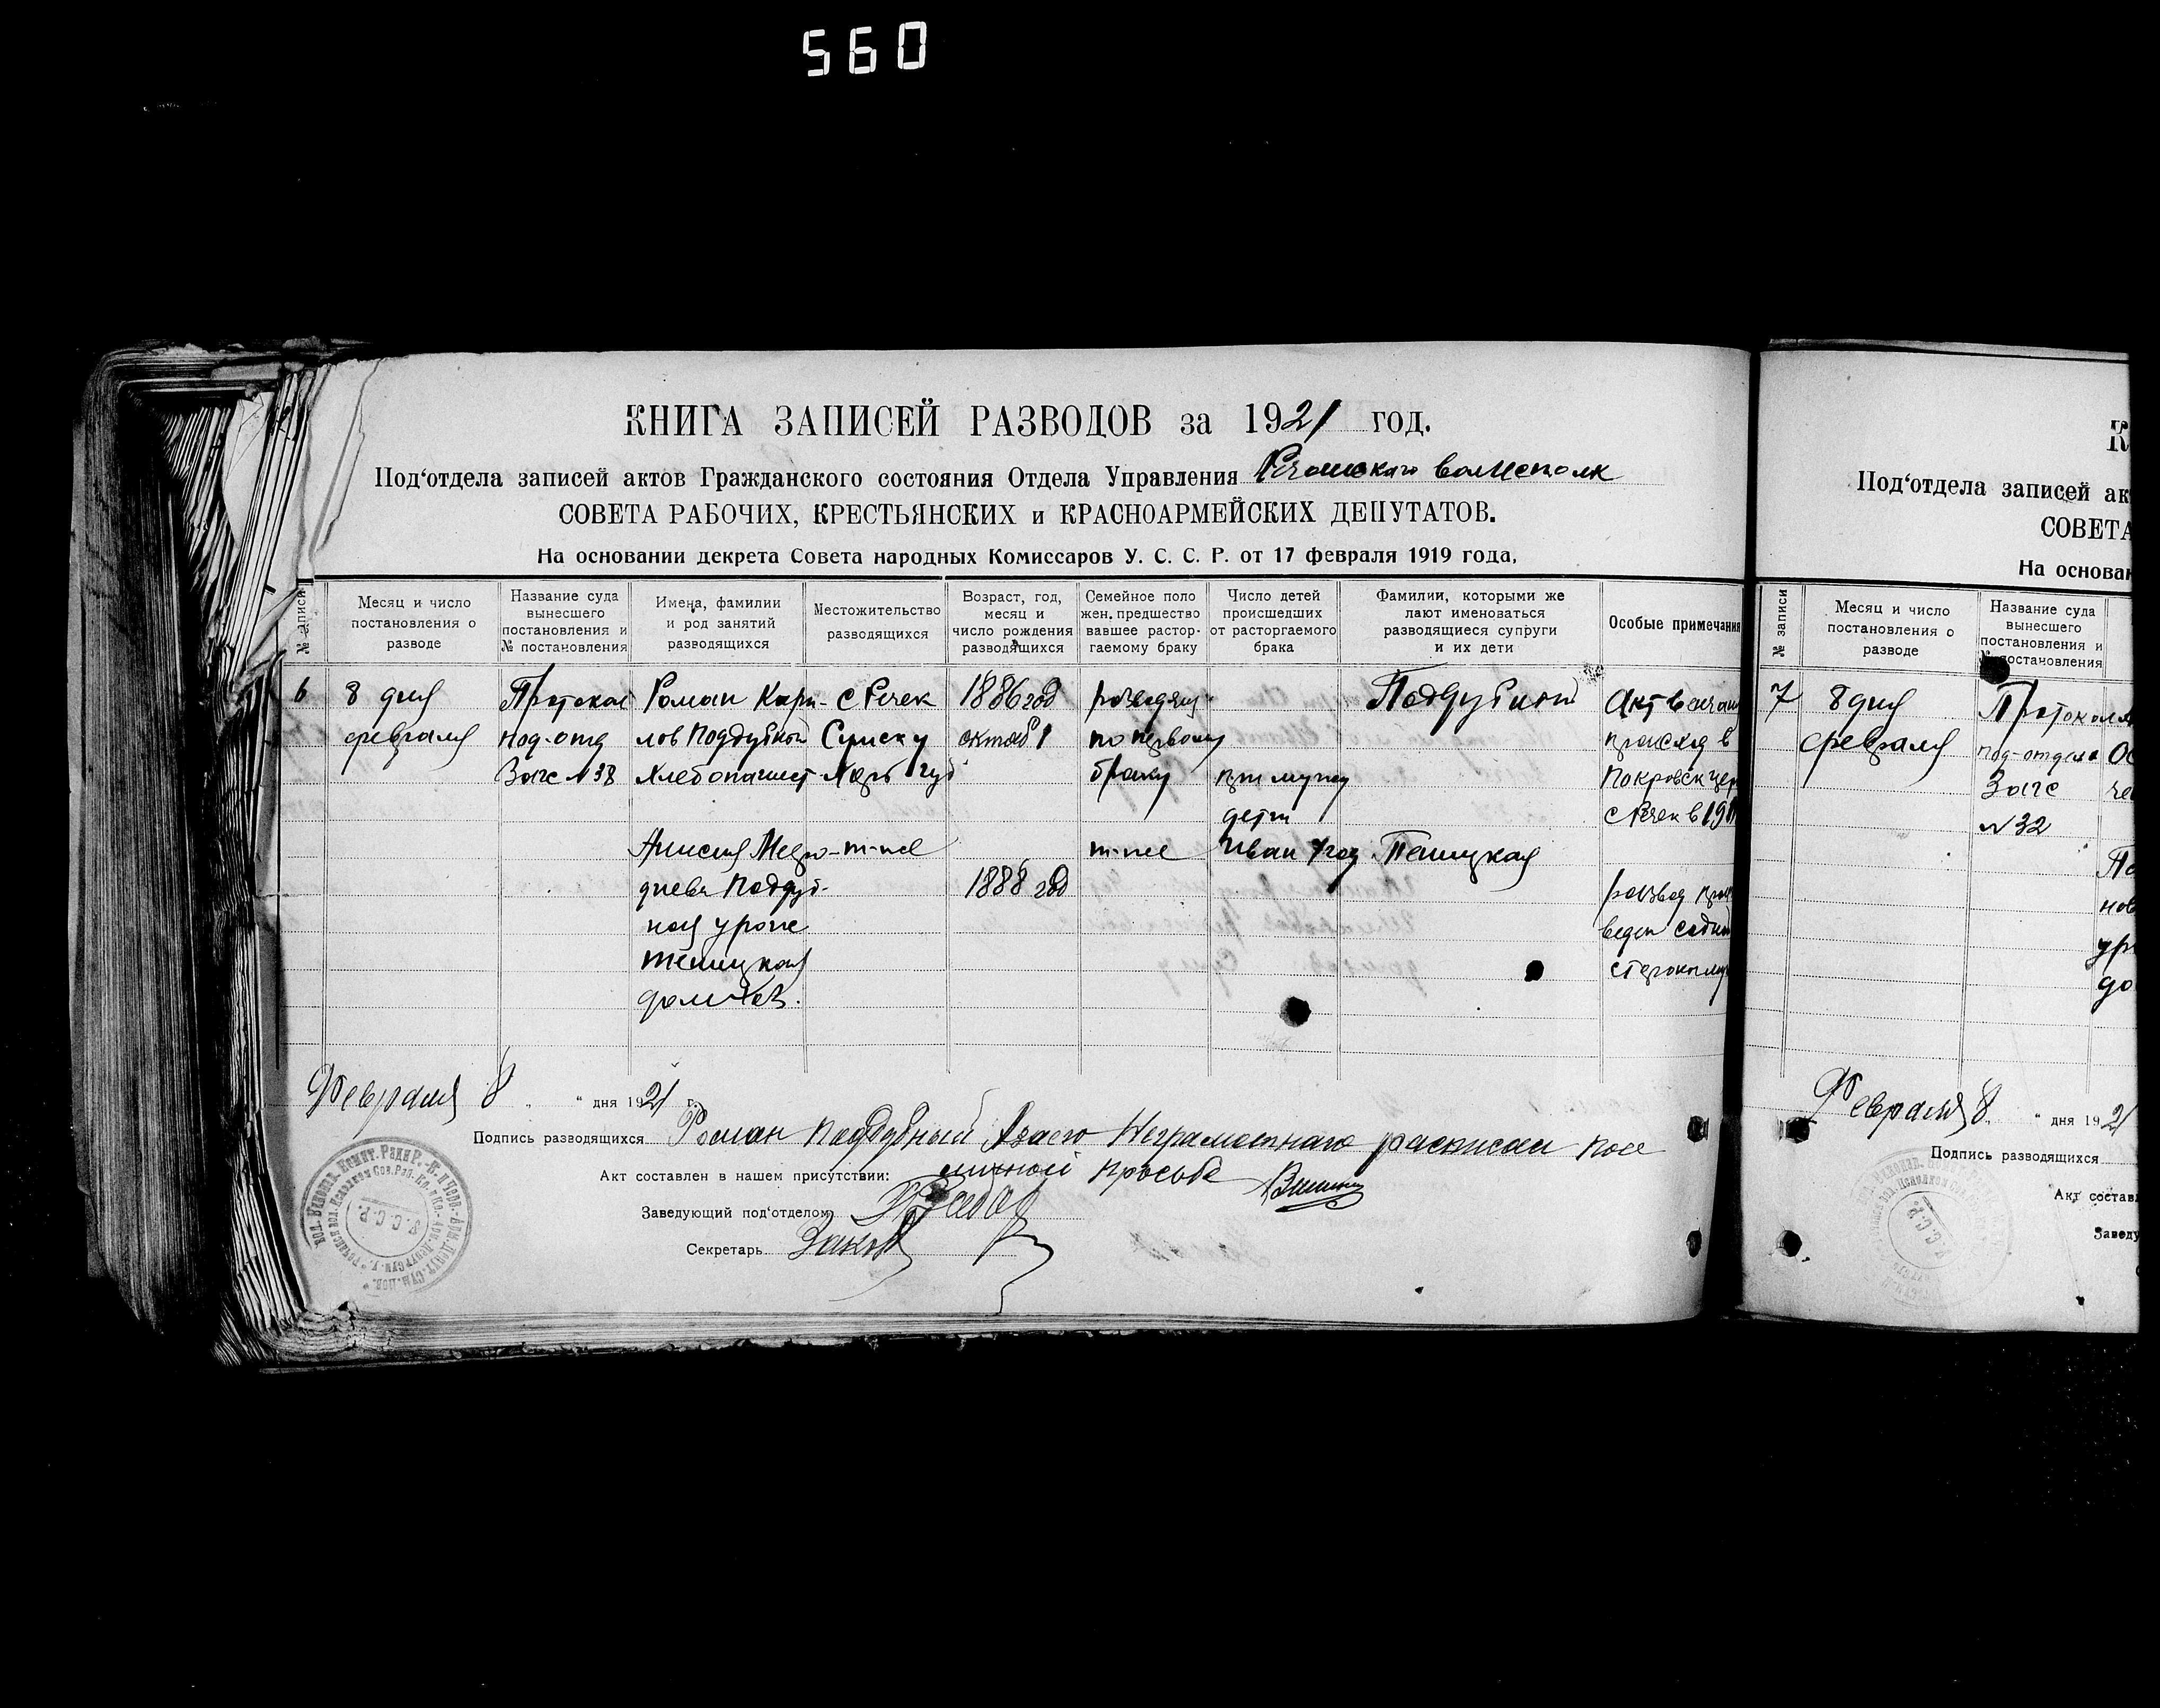 560
КНИГА ЗАПИСЕЙ РАЗВОДОВ за 1921 год.
Под‘отдела записей актов Гражданского состояния Отдела Управления Речанскаго волисполк
СОВЕТА РАБОЧИХ, КРЕСТЬЯНСКИХ и КРАСНОАРМЕЙСКИХ ДЕПУТАТОВ.
На основании декрета Совета народных Комиссаров У. С. С. Р. от 17 февраля 1919 года,
№ записи
Месяц и число
постановления о
разводе
Название суда
вынесшего
постановления и
№ постановления
Имена, фамилии
и род занятий
разводящихся
Местожительство
разводящихся
Возраст, год,
месяц и
число рождения
разводящихся
Семейное поло
жен. предшество
вавшее растор-
гаемому браку
Число детей
происшедших
от расторгаемого
брака
Фамилии, которыми же
лают именоваться
разводящиеся супруги
и их дети
Особые примечания
6
8 дня
февраля
Протокол
Под-отд
Загс №38
Роман Кари-
лов Поддубной
Хлебопашест
с Речек
Сумск у
Харь губ
1886 год
октяб 1
разводящ
по первому
браку
при мужу
дети
Иван 7 год
Поддубной
Анисия
дневн Поддуб-
ная уроже
домохоз.
т-же
1888 год
т-же
Акт венчан
происход в
Покровск цер
с Речек в 191
развод про
веден
Февраля 8 " дня 1921 г.
Подпись разводящихся Роман Поддубный Азаего Неграмотнаго расписал по ее
личной просьбе
Акт составлен в нашем присутствии:
Заведующий под‘отделом
Секретарь
У.С.С.Р.
К
Под‘отдела записей ак
СОВЕТА
На основан
№ записи
Месяц и число
постановления о
разводе
Название суда
вынесшего
постановления и
№ постановления
7
8 дня
февраля
Протокол
под-отдела
Загс
№32
Февраля 8. " дня 1921
Подпись разводящихся
Акт составл
Заведу